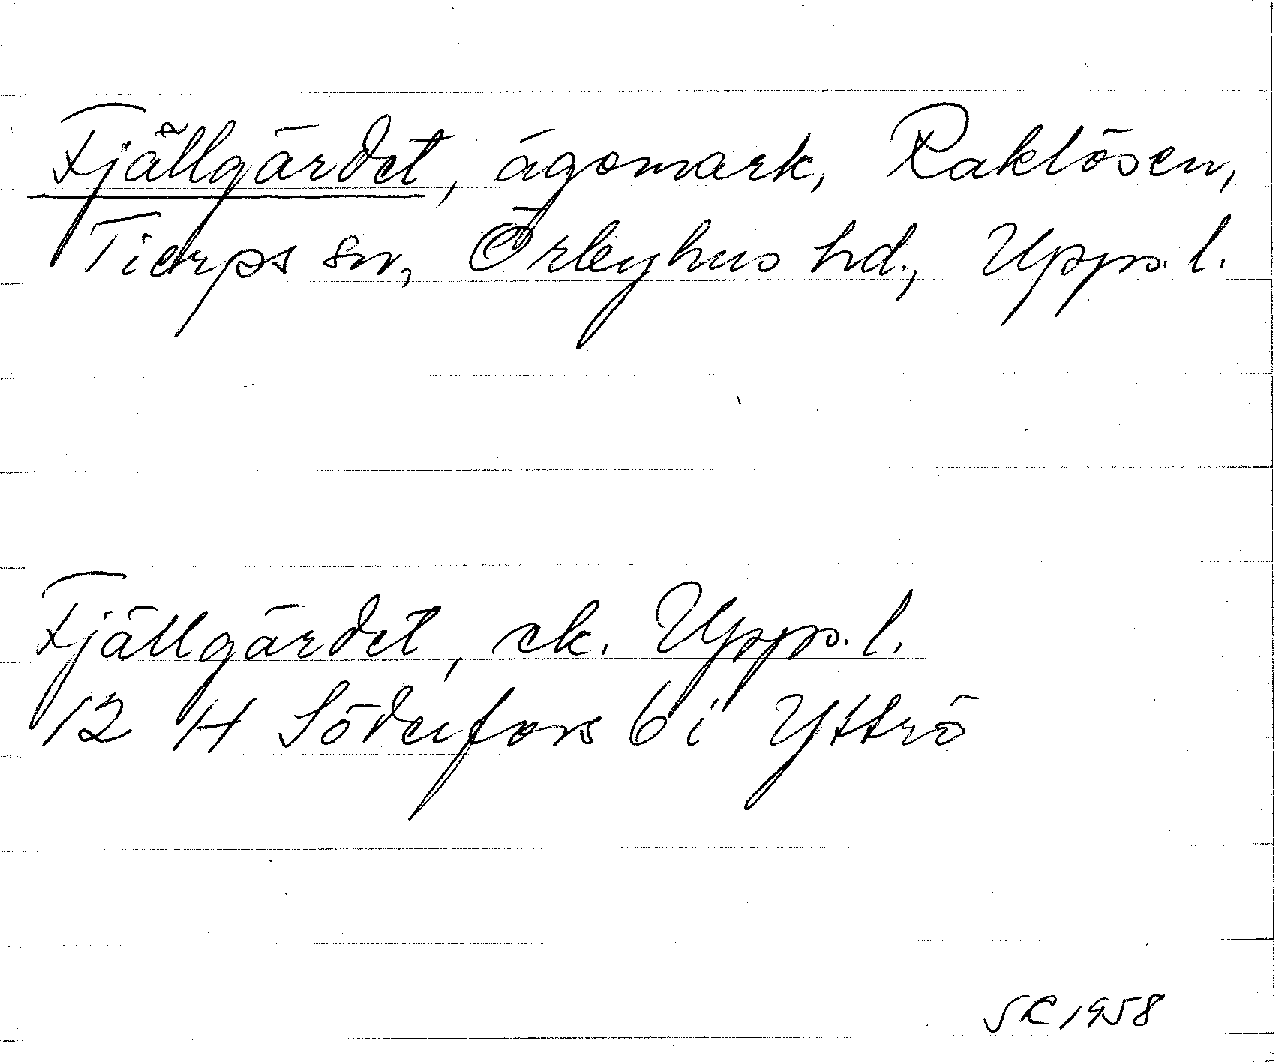 Fjällgärdet, ägomark, Raklösen,
Tierps sn, Örbyhus hd., Upps. l.
Fjällgärdet, ek. Upps. l.
12 H Söderfors 6 i Yttrö
1958